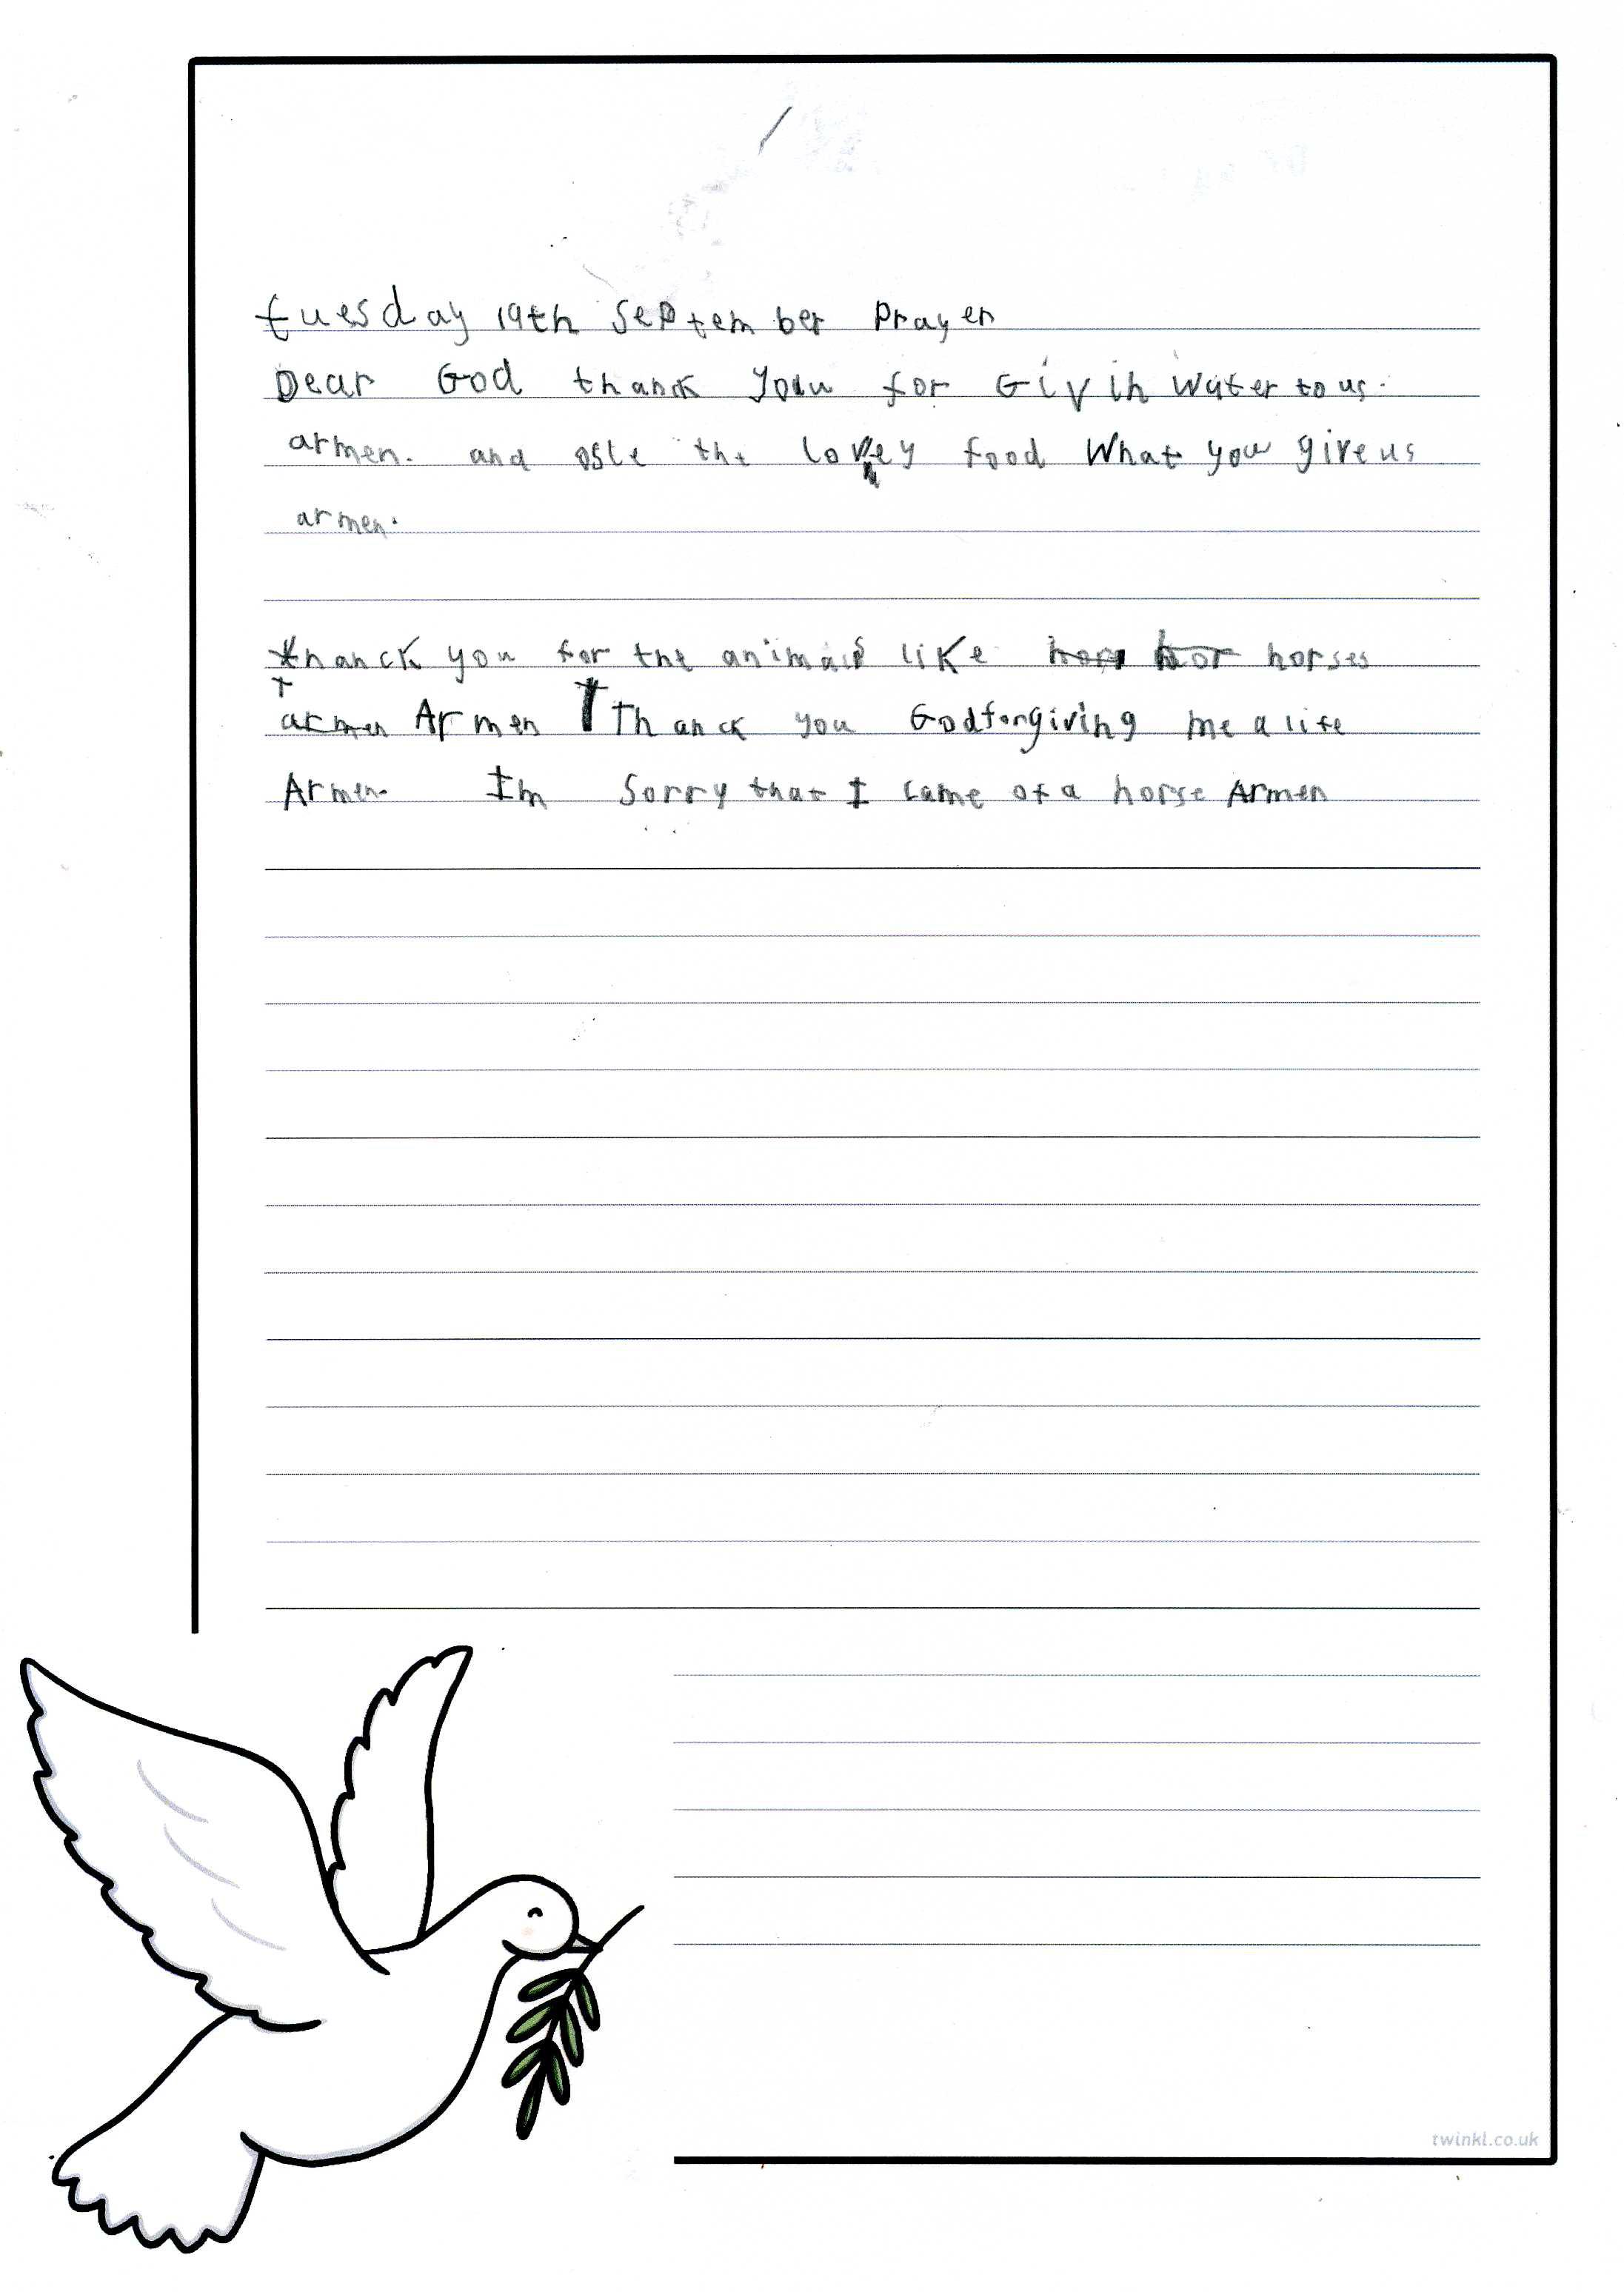 tuesday 19th September Prayer
Dear God thanck you for Givin water to us.
armen. and osle the lovey food What you give us
armen.
thanck you for the animals like horses
armen Armen Thanck you God for giving me a life
Armen. Im Sorry that I came of a horse Armen
twinkl.co.uk